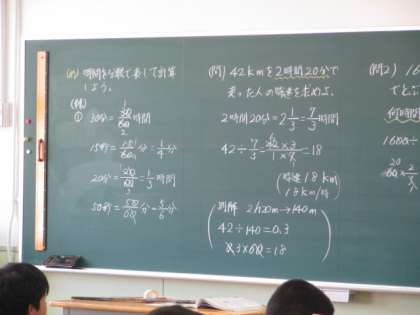 (め) 時間を分数で表して計算
しよう。
(例)
① 30分=30/60=1/2時間
15秒=15/60分=1/4分
20分=20/60=1/3時間
50秒=50/60分=5/6分
(問) 42kmを2時間20分で
走った人の時速を求めよ。
2時間20分=2 1/3=7/3時間
42÷7/3=42×3/1×7=18
(時速18km)
18km/時
別解 2h20m→140m
42÷140=0.3
0.3×60=18
(問2)